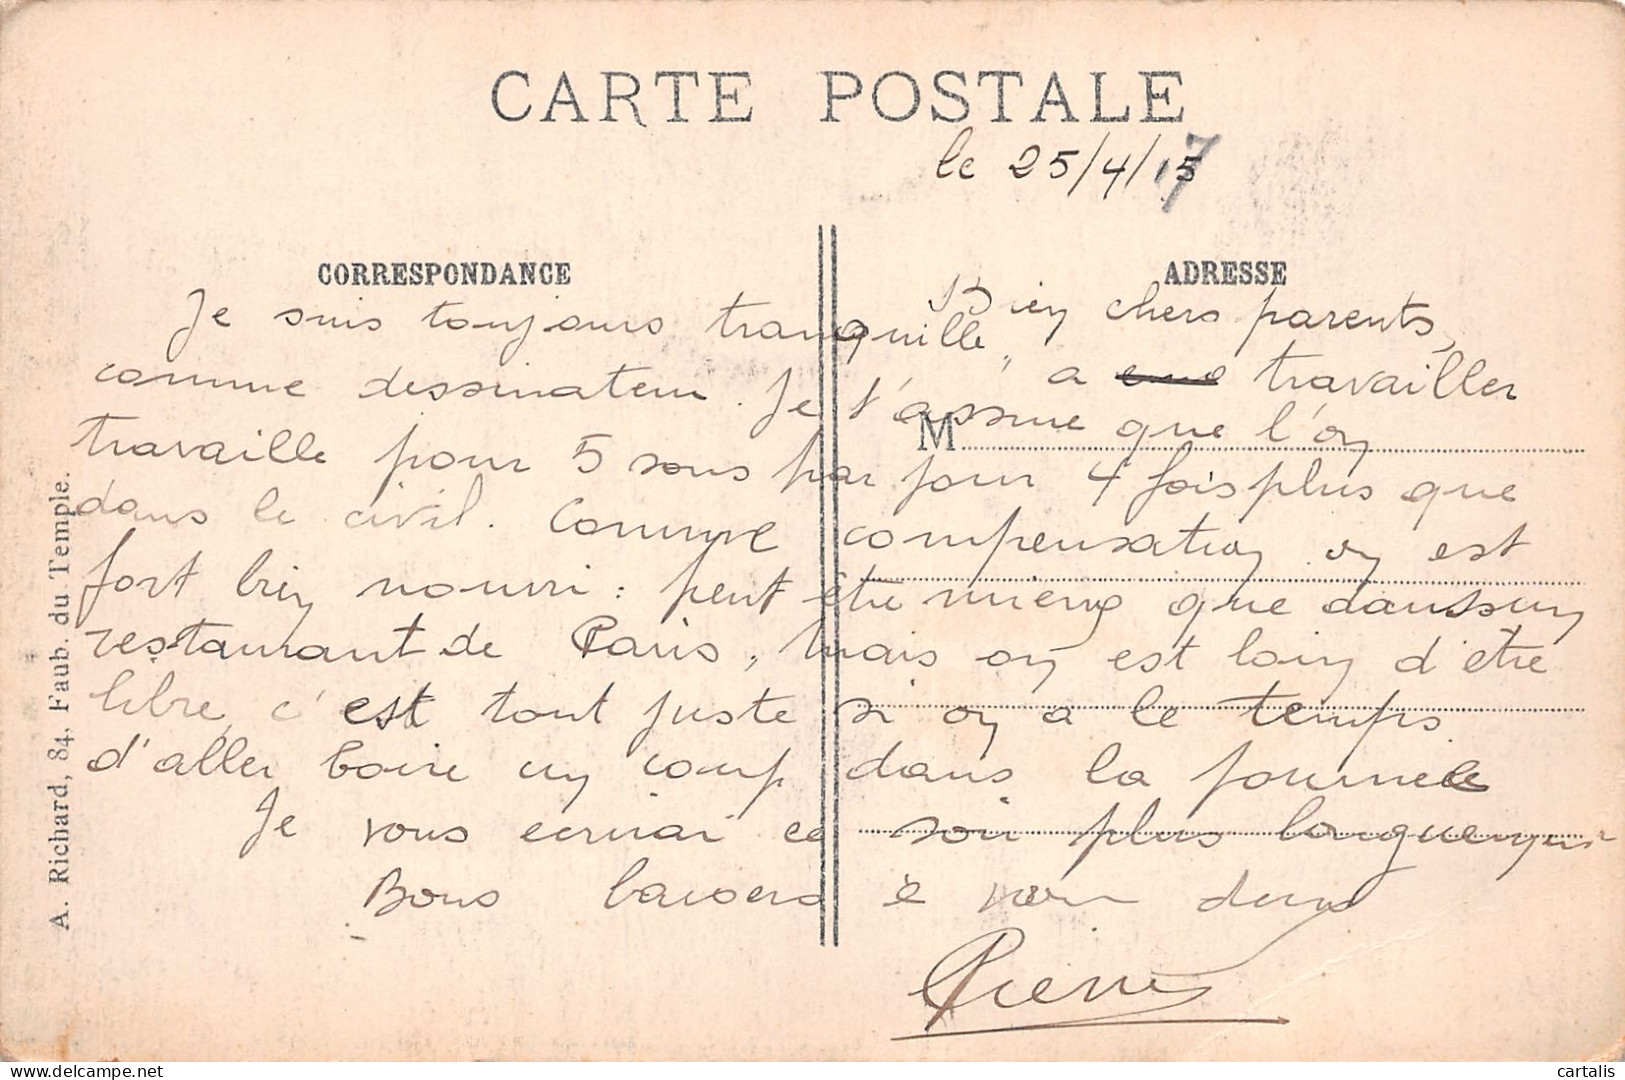 CARTE POSTALE
le 25/4/15 7
CORRESPONDANCE
ADRESSE
Bien chers parents,
Je suis toujours tranquille, à travailler
comme dessinateur. Je t'assure que l'on
M
travaille pour 5 sous par jour 4 fois plus que
dans le civil. Comme compensation on est
fort bien nourri : peut être mieux que dans un
restaurant de Paris, mais on est loin d'être
libre, c'est tout juste si on a le temps
d'aller boire un coup dans la journee
Je vous ecrirai ce soir plus longuement
Bons baisers à vous deux
Pierre
A. Richard, 84, Faub. du Temple.
delcampe.net
cartalis